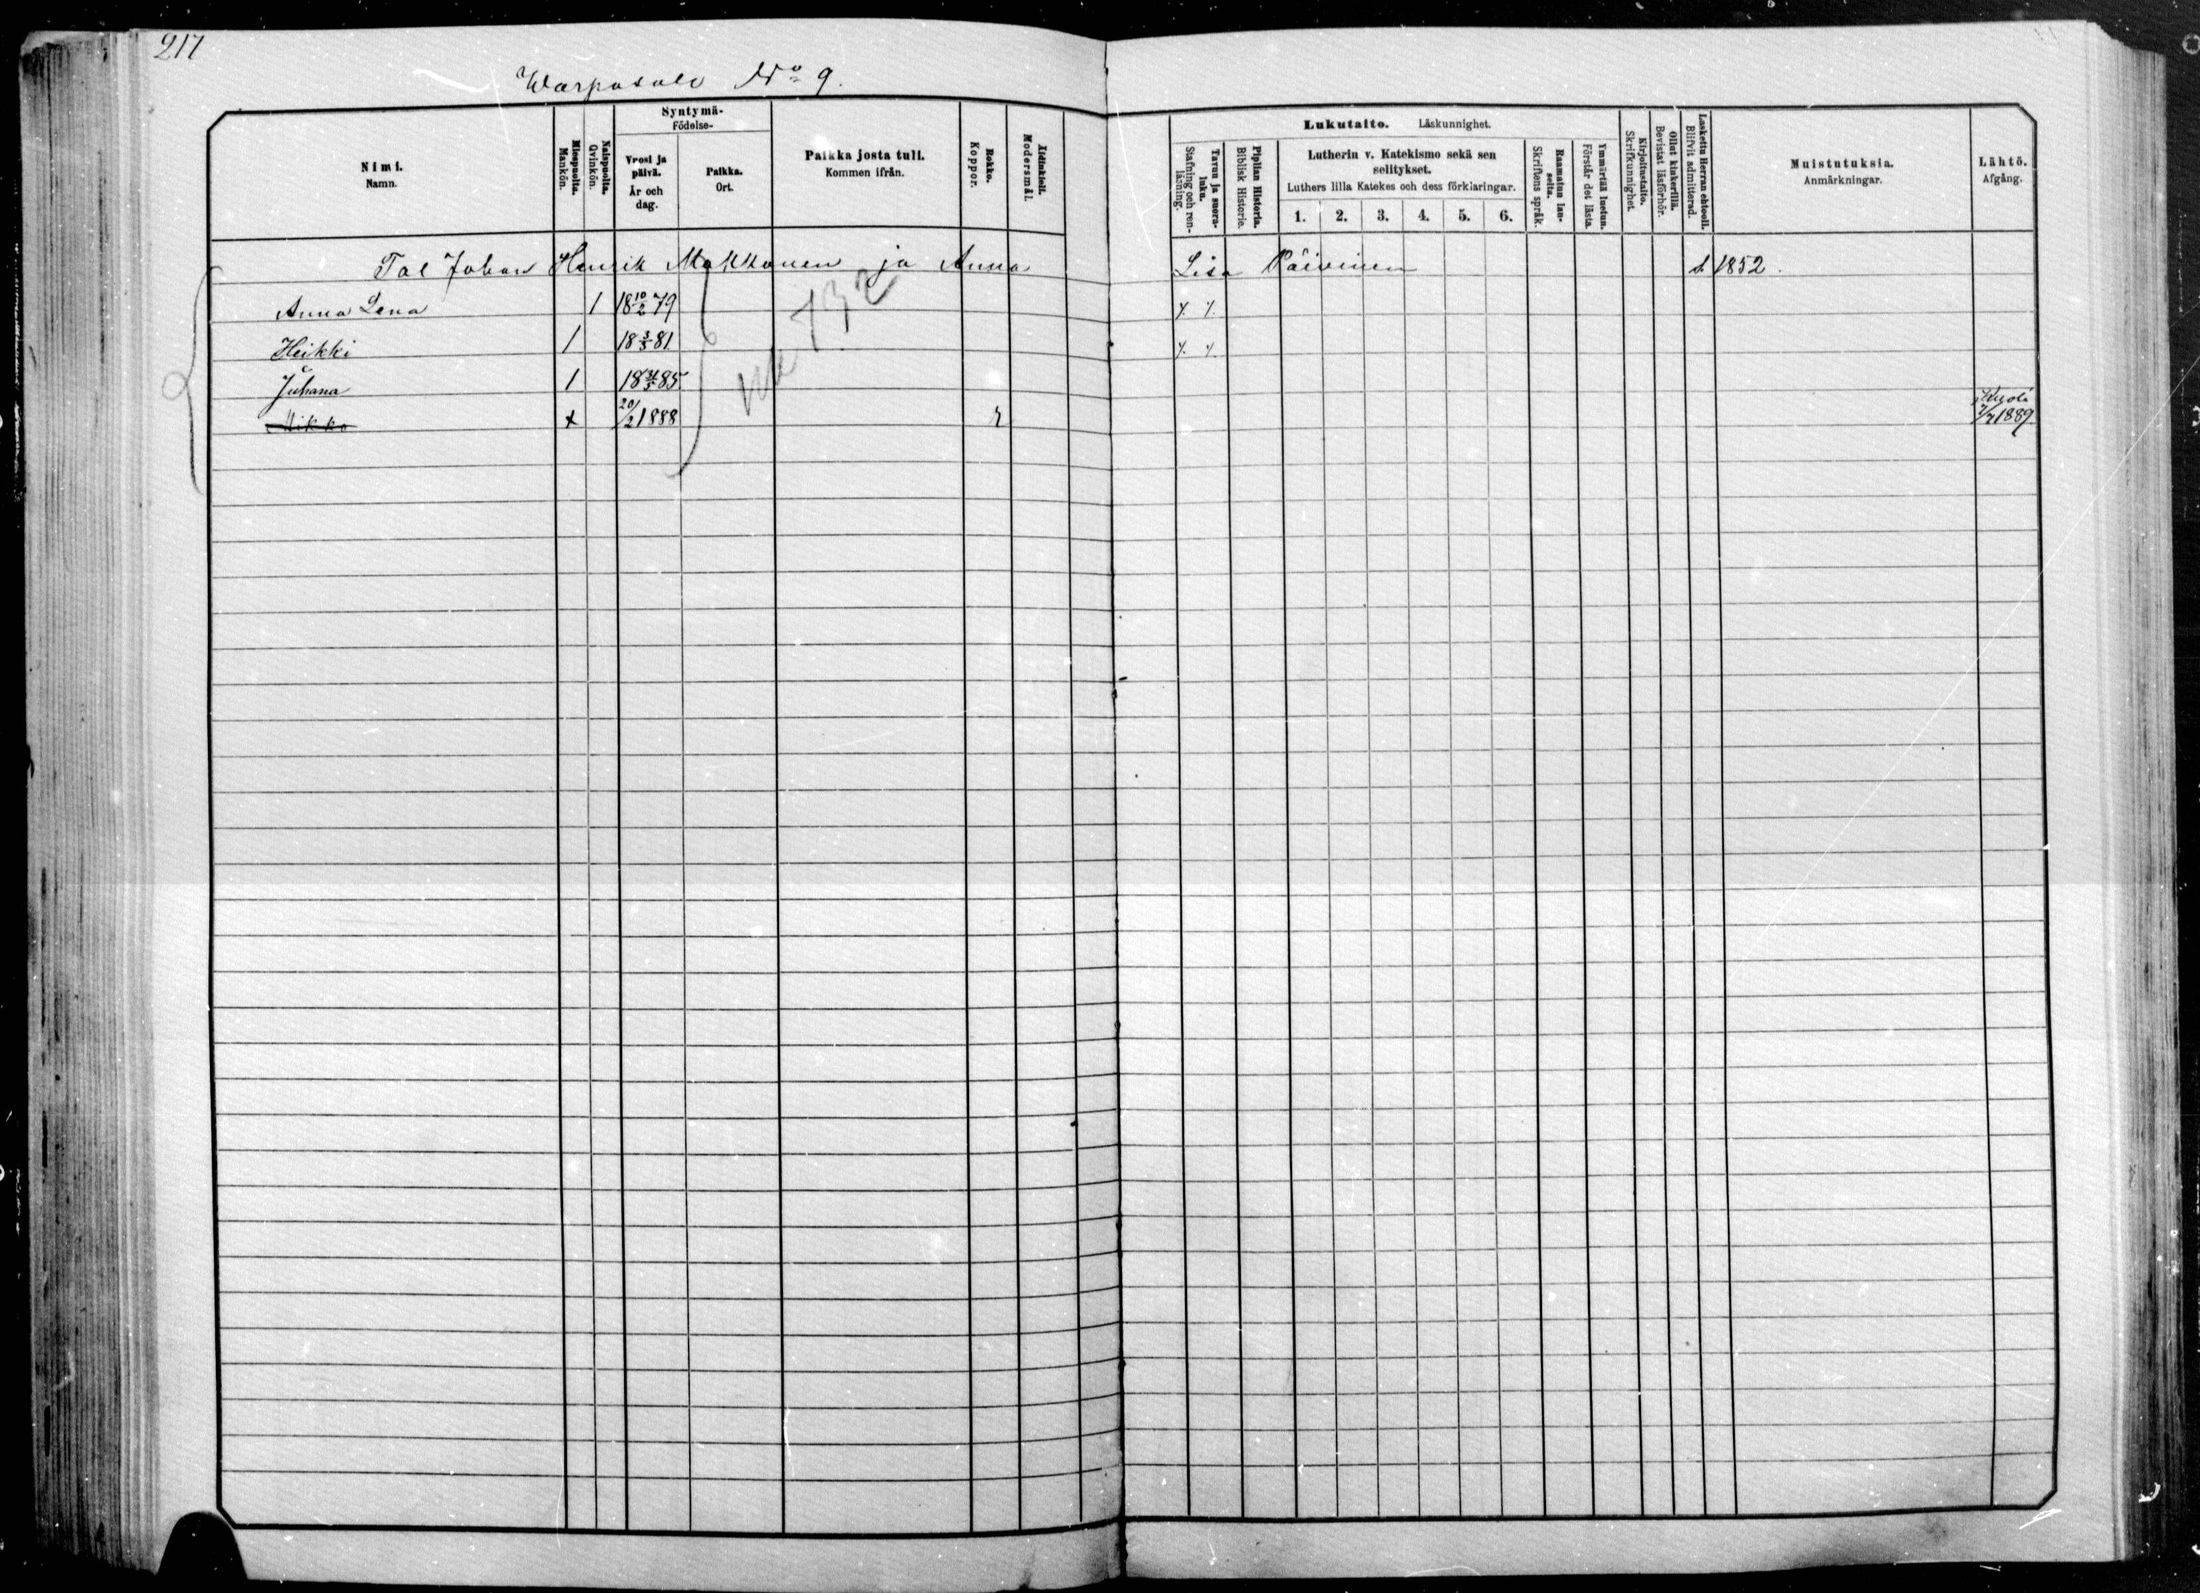 217
Warpasalo No 9.
Nimi.
Namn.
Miespuolta.
Mankön.
Naispuolta.
Qvinkön.
Syntymä-
Födelse-
Vuosi ja
päivä.
År och
dag.
Paikka.
Ort.
Paikka josta tuli.
Kommen ifrån.
Rokko.
Koppor.
Äidinkieli.
Modersmål.
Lukutaito. Läskunnighet.
Tavuu ja suora-
luku.
Stafning och ren-
läsning.
Piplian Historia.
Biblisk Historie.
Lutherin v. Katekismo sekä sen
selitykset.
Luthers lilla Katekes och dess förklaringar.
1. 2. 3. 4. 5. 6.
Raamatun lau-
seita.
Skriftens språk.
Ymmärtää luetun.
Förstår det lästa.
Kirjoitustaito.
Skrifkunnighet.
Ollut kinkerillä.
Bevistat läsförhör.
Laskettu Herran ehtooll.
Blifvit admitterad.
Muistutuksia.
Anmärkningar.
Lähtö.
Afgång.
Tal Johan Henrik Makkonen ja Anna Lisa Päivinen s. 1852.
Anna Lena 1 18 10/2 79
Heikki 1 18 3/3 81
Juhana 1 18 31/5 85
Mikko x 20/2 1888 r Kuoli 7/7 1889
732